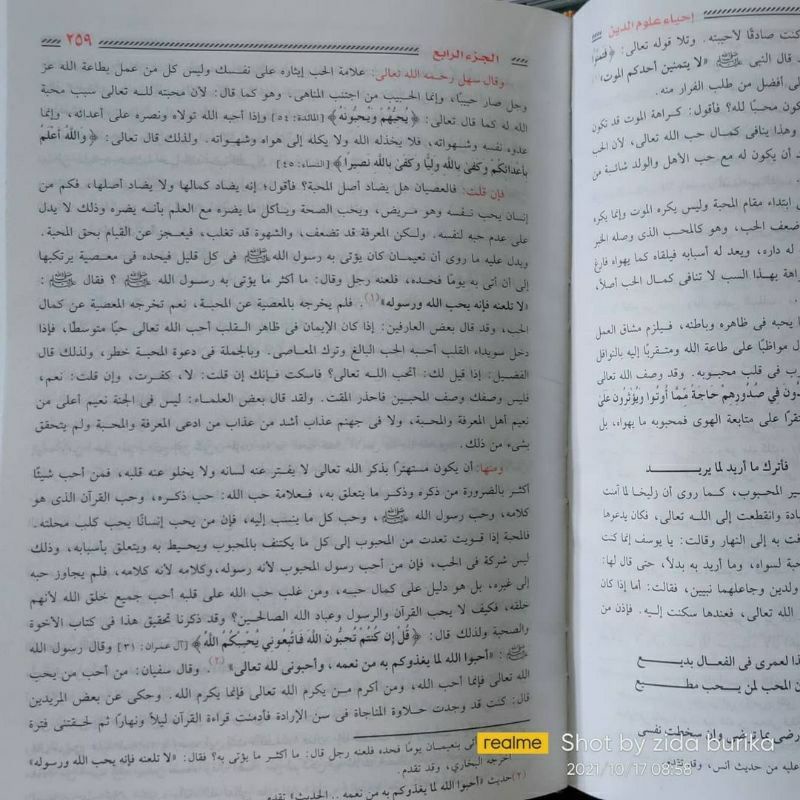 إحياء علوم الدين
كنت صادقًا لأحببته. وتلا قوله تعالى:
قال النبى ﷺ «لا يتمنين أحدكم الموت»
أفضل من طلب الفرار منه.
محبًا لله؟ فأقول: كراهة الموت قد تكون
وهذا ينافى كمال حب الله تعالى، لأن الحب
أن يكون له مع حب الأهل والولد شائبة من
ابتداء مقام المحبة وليس يكره الموت وإنما يكره
ضعف الحب، وهو كالمحب الذى وصله الخبر
له داره، ويعد له أسبابه فيلقاه كما يهواه فارغ
بهذا السبب لا تنافى كمال الحب أصلاً،
يحبه فى ظاهره وباطنه، فيلزم مشاق العمل
مواظبًا على طاعة الله ومتقربًا إليه بالنوافل
فى قلب محبوبه. وقد وصف الله تعالى
فِي صُدُورِهِمْ حَاجَةً مِّمَّا أُوتُوا وَيُؤْثِرُونَ عَلَىٰ
على متابعة الهوى فمحبوبه ما يهواه، بل
فأترك ما أريد لما يريد
المحبوب، كما روى أن زليخا لما آمنت
وانقطعت إلى الله تعالى، فكان يدعوها
به إلى النهار وقالت: يا يوسف إنما كنت
لسواه، وما أريد به بدلاً، حتى قال لها:
ولدين وجاعلهما نبيين، فقالت: أما إذا كان
الله تعالى، فعندها سكنت إليه. فإذن من
لعمرى فى الفعال بديع
المحب لمن يحب مطيع
وإن سخطت نفسى
عليه من حديث أنس، وقد تقدم
الجزء الرابع
٢٥٩
وقال سهل رحمه الله تعالى: علامة الحب إيثاره على نفسك وليس كل من عمل بطاعة الله عز
وجل صار حبيبًا، وإنما الحبيب من اجتنب المناهى. وهو كما قال: لأن محبته لله تعالى سبب محبة
الله له كما قال تعالى: ﴿يُحِبُّهُمْ وَيُحِبُّونَهُ﴾ [المائدة: ٥٤] وإذا أحبه الله تولاه ونصره على أعدائه، وإنما
عدوه نفسه وشهواته، فلا يخذله الله ولا يكله إلى هواه وشهواته. ولذلك قال تعالى: ﴿وَاللَّهُ أَعْلَمُ
بِأَعْدَائِكُمْ وَكَفَىٰ بِاللَّهِ وَلِيًّا وَكَفَىٰ بِاللَّهِ نَصِيرًا﴾ [النساء: ٤٥]
فإن قلت: فالعصيان هل يضاد أصل المحبة؟ فأقول؛ إنه يضاد كمالها ولا يضاد أصلها، فكم من
إنسان يحب نفسه وهو مريض، ويحب الصحة ويأكل ما يضره مع العلم بأنه يضره وذلك لا يدل
على عدم حبه لنفسه. ولكن المعرفة قد تضعف، والشهوة قد تغلب، فيعجز عن القيام بحق المحبة.
ويدل عليه ما روى أن نعيمان كان يؤتى به رسول الله ﷺ فى كل قليل فيحده فى معصية يرتكبها
إلى أن أتى به يومًا فحده، فلعنه رجل وقال: ما أكثر ما يؤتى به رسول الله ﷺ ؟ فقال ﷺ :
«لا تلعنه فإنه يحب الله ورسوله»(١). فلم يخرجه بالمعصية عن المحبة، نعم تخرجه المعصية عن كمال
الحب، وقد قال بعض العارفين: إذا كان الإيمان فى ظاهر القلب أحب الله تعالى حبًا متوسطًا، فإذا
دخل سويداء القلب أحبه الحب البالغ وترك المعاصى. وبالجملة فى دعوة المحبة خطر، ولذلك قال
الفضيل: إذا قيل لك: أتحب الله تعالى؟ فاسكت فإنك إن قلت: لا، كفرت، وإن قلت: نعم،
فليس وصفك وصف المحبين فاحذر المقت. ولقد قال بعض العلماء: ليس فى الجنة نعيم أعلى من
نعيم أهل المعرفة والمحبة، ولا فى جهنم عذاب أشد من عذاب من ادعى المعرفة والمحبة ولم يتحقق
بشىء من ذلك.
ومنها: أن يكون مستهترًا بذكر الله تعالى لا يفتر عنه لسانه ولا يخلو عنه قلبه، فمن أحب شيئًا
أكثر بالضرورة من ذكره وذكر ما يتعلق به، فعلامة حب الله: حب ذكره، وحب القرآن الذى هو
كلامه، وحب رسول الله ﷺ، وحب كل ما ينسب إليه، فإن من يحب إنسانًا يحب كلب محلته.
فالمحبة إذا قويت تعدت من المحبوب إلى كل ما يكتنف بالمحبوب ويحيط به ويتعلق بأسبابه، وذلك
ليس شركة فى الحب، فإن من أحب رسول المحبوب لأنه رسوله، وكلامه لأنه كلامه، فلم يجاوز حبه
إلى غيره، بل هو دليل على كمال حبه، ومن غلب حب الله على قلبه أحب جميع خلق الله لأنهم
خلقه، فكيف لا يحب القرآن والرسول وعباد الله الصالحين؟ وقد ذكرنا تحقيق هذا فى كتاب الأخوة
والصحبة ولذلك قال: ﴿قُلْ إِن كُنتُمْ تُحِبُّونَ اللَّهَ فَاتَّبِعُونِي يُحْبِبْكُمُ اللَّهُ﴾ [آل عمران: ٣١] وقال رسول الله
ﷺ : «أحبوا الله لما يغذوكم به من نعمه ، وأحبونى لله تعالى»(٢). وقال سفيان: من أحب من يحب
الله تعالى فإنما أحب الله، ومن أكرم من يكرم الله تعالى فإنما يكرم الله. وحكى عن بعض المريدين
قال: كنت قد وجدت حلاوة المناجاة فى سن الإرادة فأدمنت قراءة القرآن ليلاً ونهارًا ثم لحقتنى فترة
بنعيمان يومًا فحده فلعنه رجل قال: ما أكثر ما يؤتى به؟ فقال: «لا تلعنه فإنه يحب الله ورسوله»
أخرجه البخارى، وقد تقدم.
(٢) حديث «أحبوا الله لما يغذوكم به من نعمه .. الحديث» تقدم
realme Shot by zida burika
2021/10/17 08:58